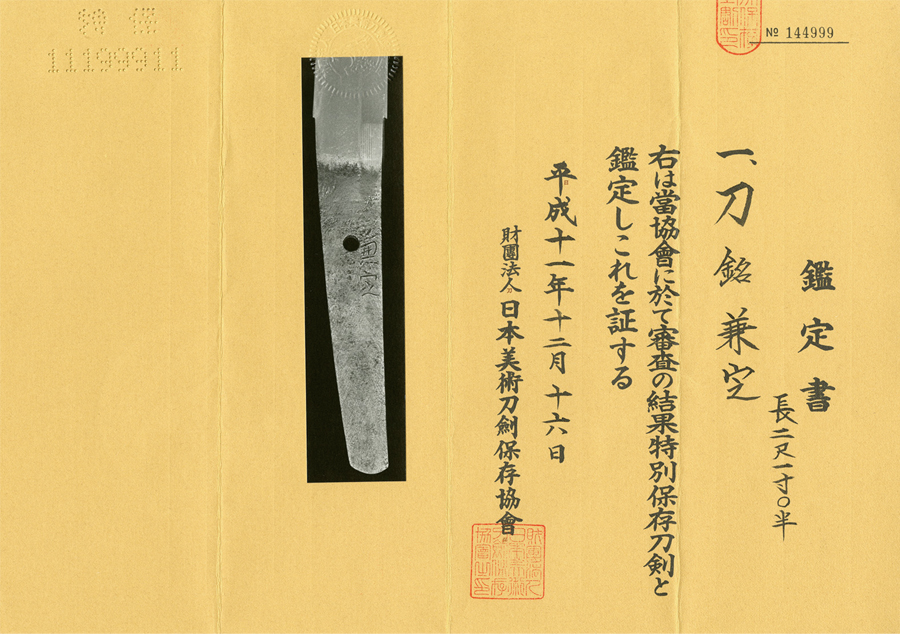 № 144999
鑑定書
一、刀 銘 兼定
長二尺一寸〇半
右は當協會に於て審査の結果特別保存刀剣と
鑑定しこれを証する
平成十一年十二月十六日
財團法人 日本美術刀劍保存協會
兼定
11199911